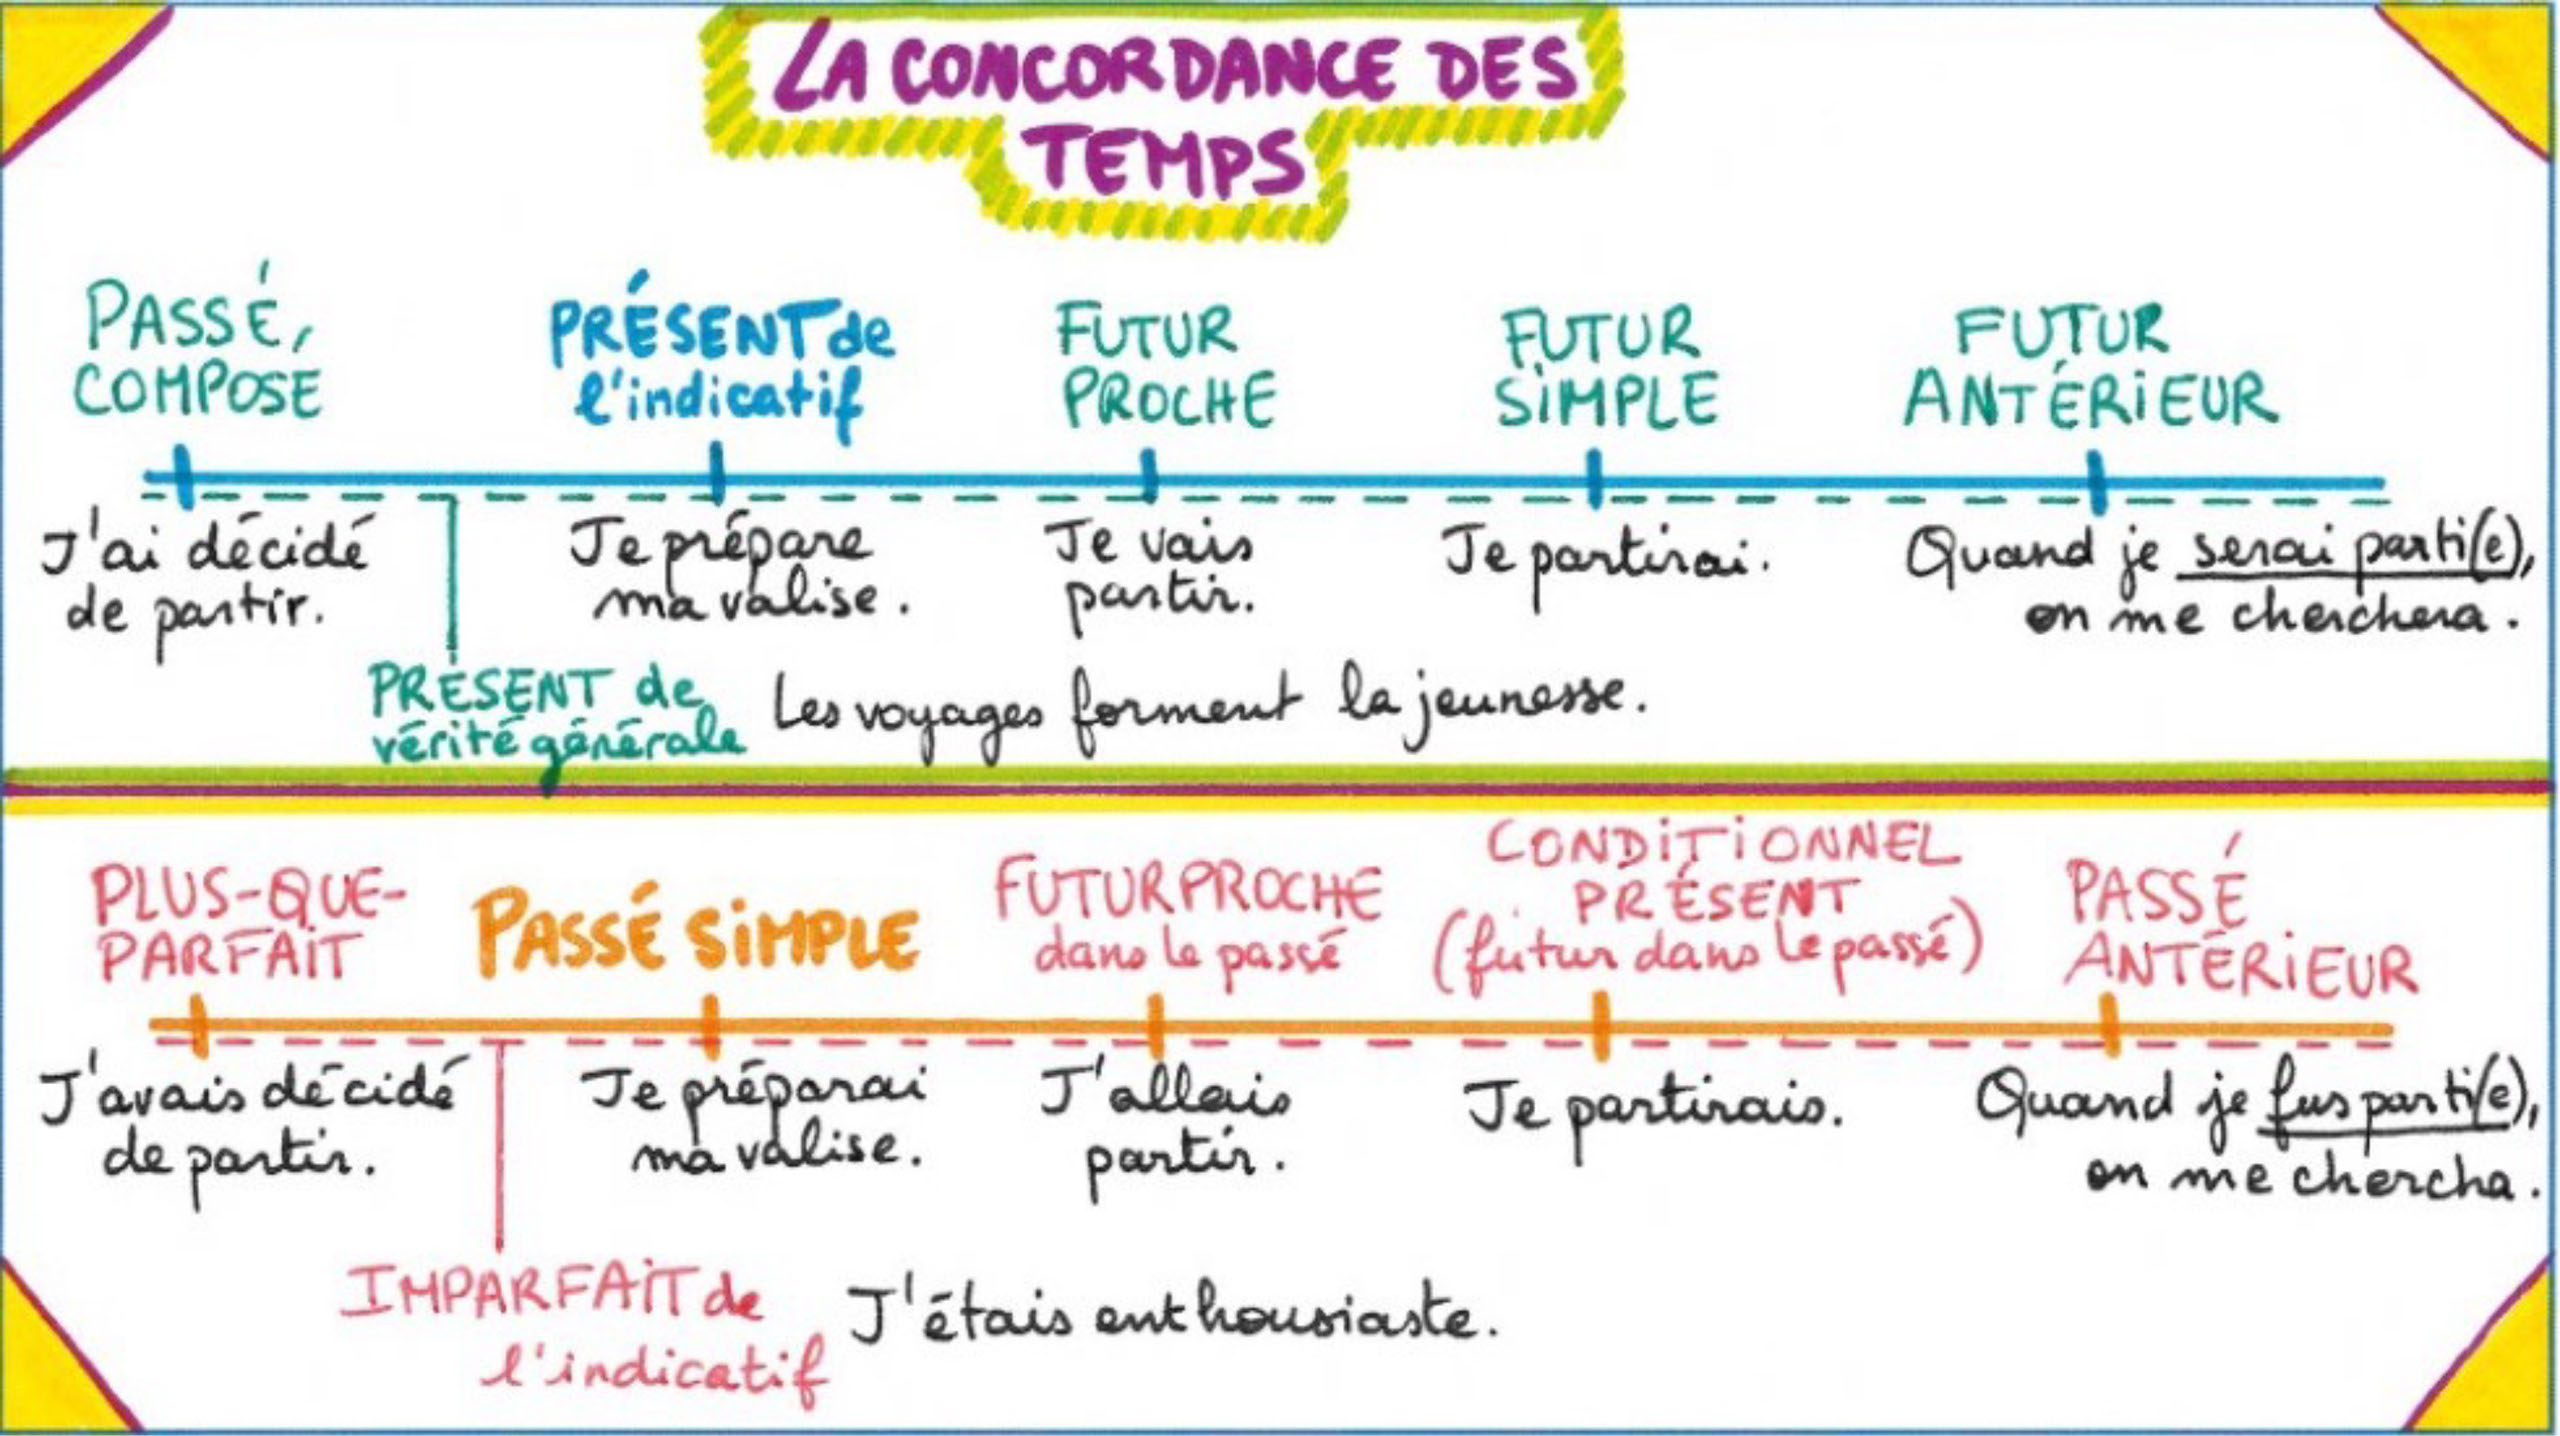 LA CONCORDANCE DES
TEMPS
PASSÉ
COMPOSÉ
PRÉSENT de
l'indicatif
FUTUR
PROCHE
FUTUR
SIMPLE
FUTUR
ANTÉRIEUR
J'ai décidé
de partir.
Je prépare
ma valise.
Je vais
partir.
Je partirai.
Quand je serai parti(e),
on me cherchera.
PRÉSENT de
vérité générale
Les voyages forment la jeunesse.
PLUS-QUE-
PARFAIT
PASSÉ SIMPLE
FUTUR PROCHE
dans le passé
CONDITIONNEL
PRÉSENT
(futur dans le passé)
PASSÉ
ANTÉRIEUR
J'avais décidé
de partir.
Je préparai
ma valise.
J'allais
partir.
Je partirais.
Quand je fus parti(e),
on me chercha.
IMPARFAIT de
l'indicatif
J'étais enthousiaste.